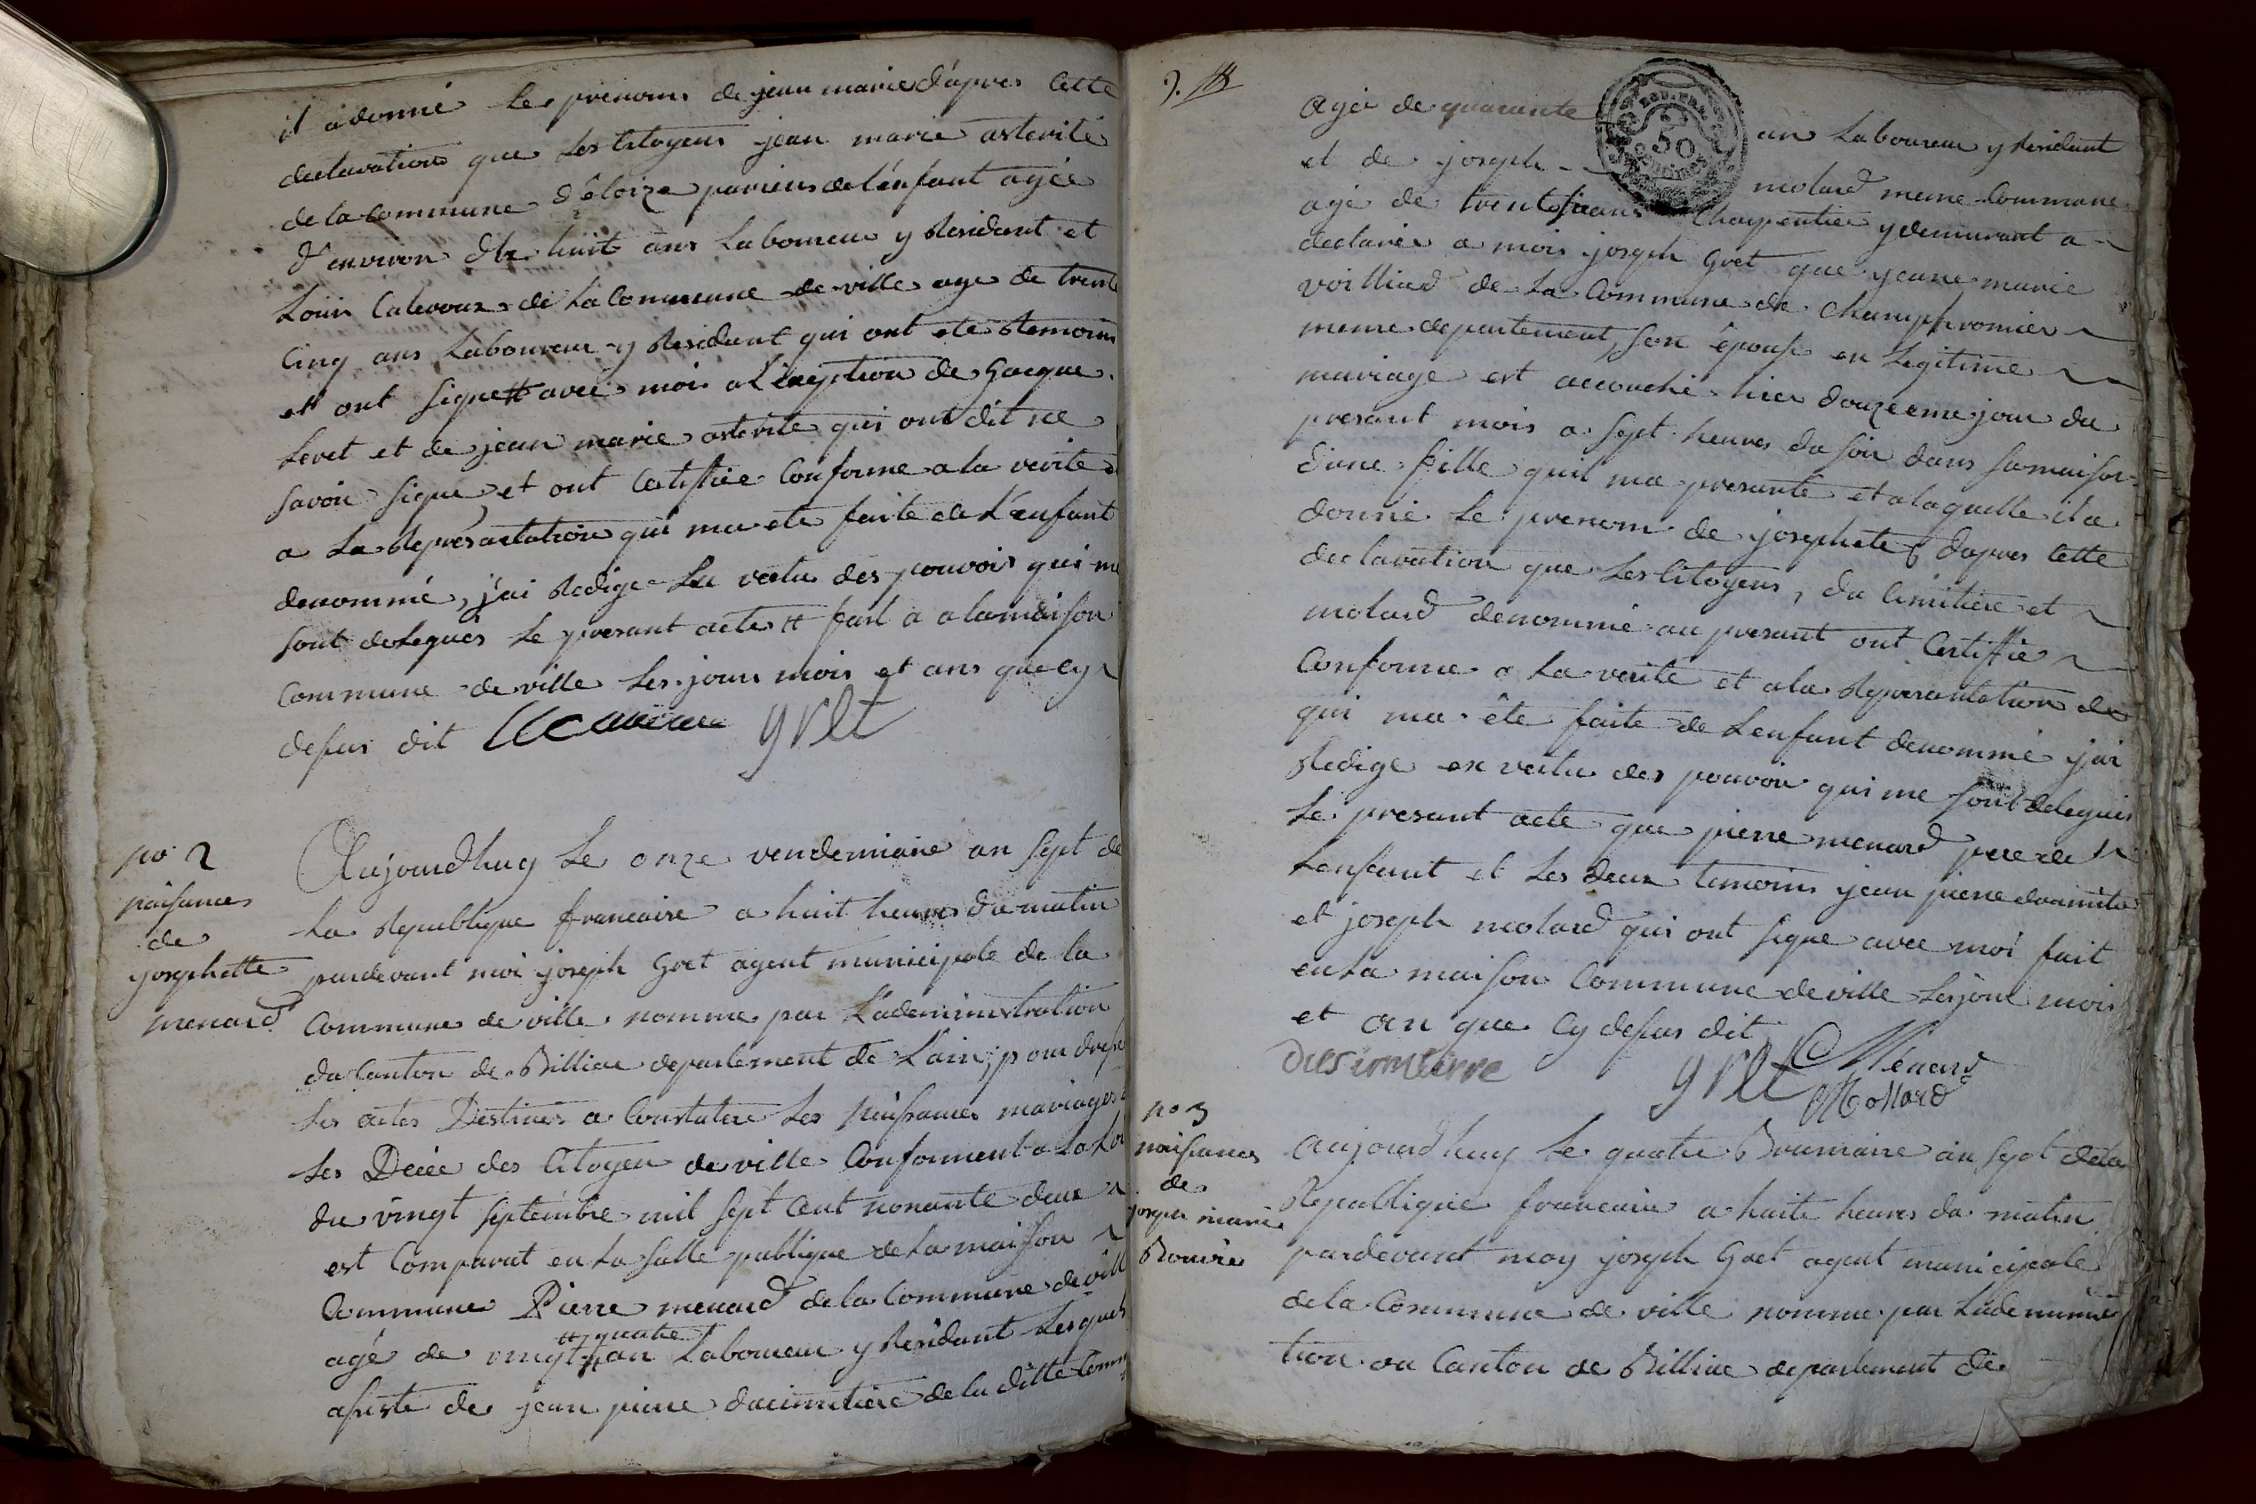 il a donné le prenoms de jean marie d'apres Cette
declaration que les Citoyens jean marie asterité
de la Commune d'éloize pariens de l'enfant agée
d'environ dix huit ans Laboureur y Residant et
Louis Calevoux de La Commune de ville age de trente
Cinq ans Laboureur y Residant qui ont eté temoins
et ont signett avec moi a L'exeption de Gacque
Levet et de jean marie asterite qui ont dit ne
savoir signe, et ont Certiffiée Conforme a la verite
a La Representation qui ma ete faite de L'enfant
denommé, j'ai Redige La vertu des pouvoirs qui me
sont delegues Le presant acte tt fait a a la maison
Commune de ville Les jours mois et ans que cy
desus dit gret
no 2
naisance
de
josephette
menard
Aujourdhuy Le onze vendemiaire an sept de
La Republique francaise a huit heures du matin
pardevant moi joseph Gret agent municipale de la
Commune de ville nomme par L'administration
du Canton de Billiac departement de L'ain, pour
Les actes Destinés a Constatere Les Naissances mariages
Les Décée des Citoyen de ville Conforment a La Loi
du vingt septembre mil sept Cent nonante deux
est Comparut en La salle publique de La maison
Commune Pierre menard de la Commune de ville
agé de vingt tt quatre an Laboureur y Residant Lesquels
asisté de jean pierre ducimitiere de la ditte Comm
9.
agée de quarante an Laboureur y Residant
et de joseph molard meme Commune
agé de trent ans Charpentier y demurant a
declarée a mois joseph Gret que jeane marie
voilliard de La Commune de Champfromier
meme departement, son épouse en Legitime
mariage est accouché hier douzeeme jour du
presant mois a sept heures du soir dans sa maison
d'une fille quil ma presanté et a laquelle il a
donné Le prenom de josephete d'apres Cette
declaration que Les Citoyens, du Cimitiere et
molard denommé au presant ont Certiffie
Conforme a La verite et a la Representation de
qui ma été faite de Lenfant denommé jai
Redige en vertu des pouvoir qui me sont delegués
Le presant acte que pierre menard pere de
Lenfant et Les deux temoins jean pierre
et joseph molard qui ont signe avec moi fait
en La maison Commune de ville Les jour mois
et an que Cy desus dit
ducimitierre gret Ménard
Mollard
no 3
naisance
de
joseph marie
Bouvie
aujourdhuy Le quatre Brumaire an sept de la
Republique francaise a huite heures du matin
pardevant moy joseph Gret agent municipale
de la Commune de ville nomme par L'adminis
tion du Canton de Billiac departement de